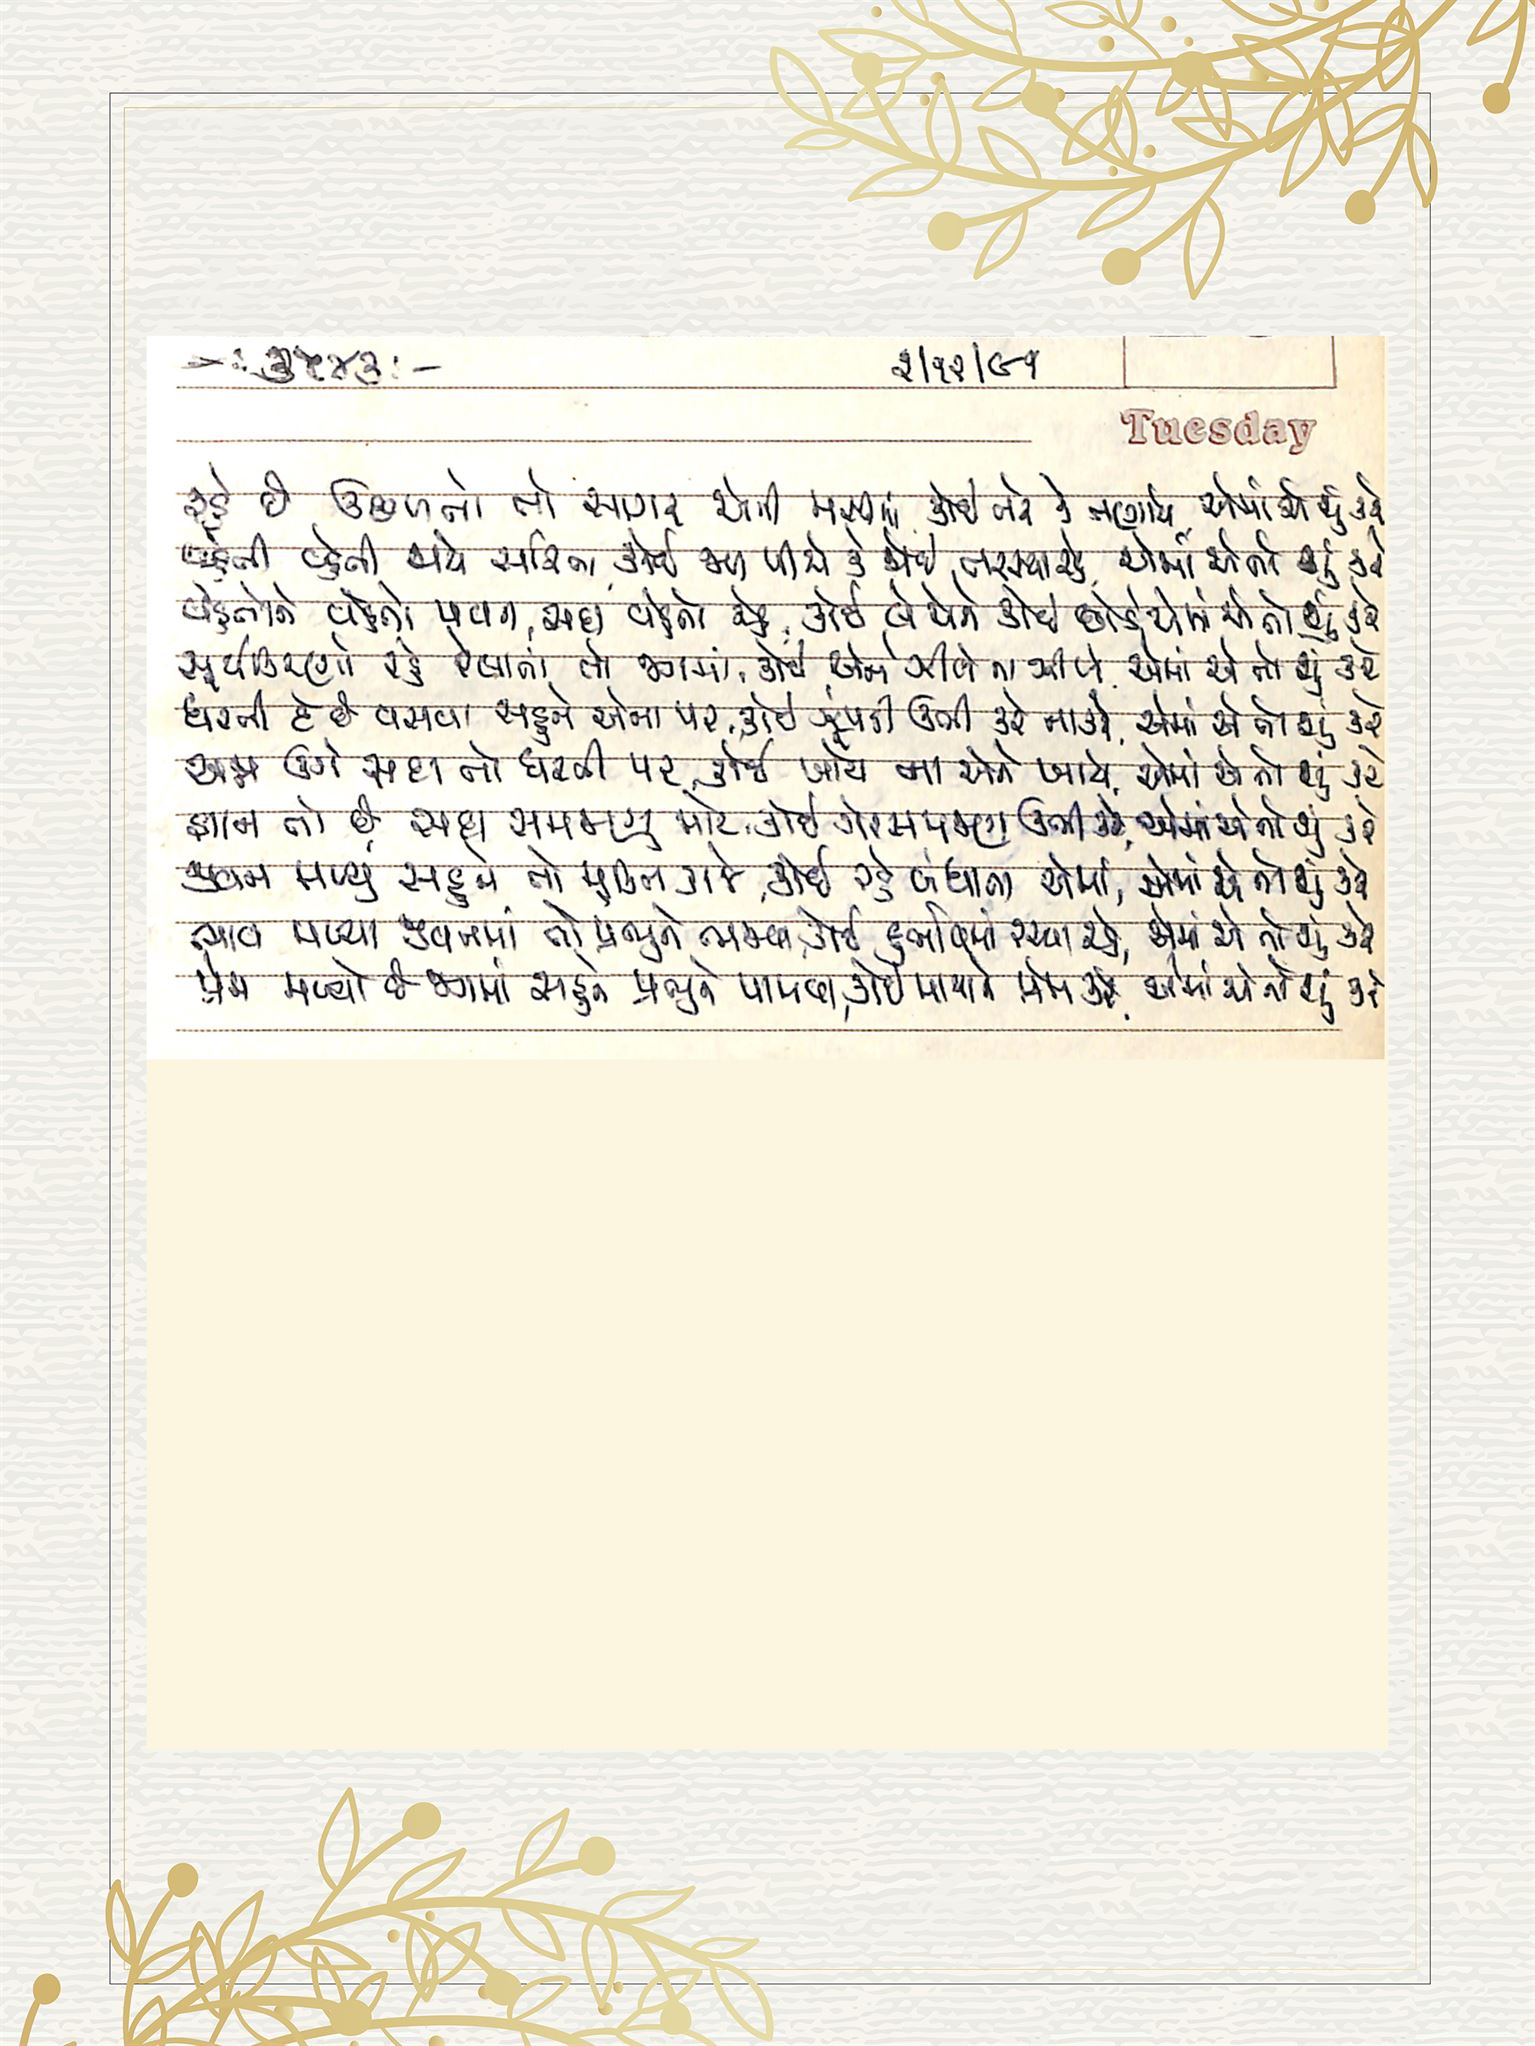 ૨/૧૨/૯૧
Tuesday
રહે છે ઉછળતો તો સાગર એની મસ્તીમાં, કોઈ તરે કે તણાયે, એમાં એ શું કરે
વહેતી વહેતી જાયે સરિતા, કોઈ જળ પીએ કે કોઈ તરસ્યા રહે, એમાં એ તો શું કરે
વહેતોને વહેતો પવન, સદા વહેતો રહે, કોઈ લે એને કોઈ છોડે, એમાં એ તો શું કરે
સૂર્યકિરણો રહે રેલાતાં તો જગમાં, કોઈ એને ઝીલે ના ઝીલે, એમાં એ તો શું કરે
ધરતી દે છે વસવા સહુને એના પર, કોઈ ઝૂંપડી ઊભી કરે ના કરે, એમાં એ તો શું કરે
અન્ન ઊગે સદા તો ધરતી પર, કોઈ ખાયે ના એને ખાયે, એમાં એ તો શું કરે
જ્ઞાન તો છે સદા સમજણ માટે, કોઈ ગેરસમજણ ઊભી કરે, એમાં એ તો શું કરે
જીવન મળ્યું સહુને તો મુક્તિ કાજે, કોઈ રહે બંધાતા એમાં, એમાં એ તો શું કરે
ભાવ મળ્યા જીવનમાં તો પ્રભુને ભજવા, કોઈ દુર્ભાવમાં રચ્યા રહે, એમાં એ તો શું કરે
પ્રેમ મળ્યો છે જગમાં સહુને પ્રભુને પામવા, કોઈ માયાને પ્રેમ કરે, એમાં એ તો શું કરે